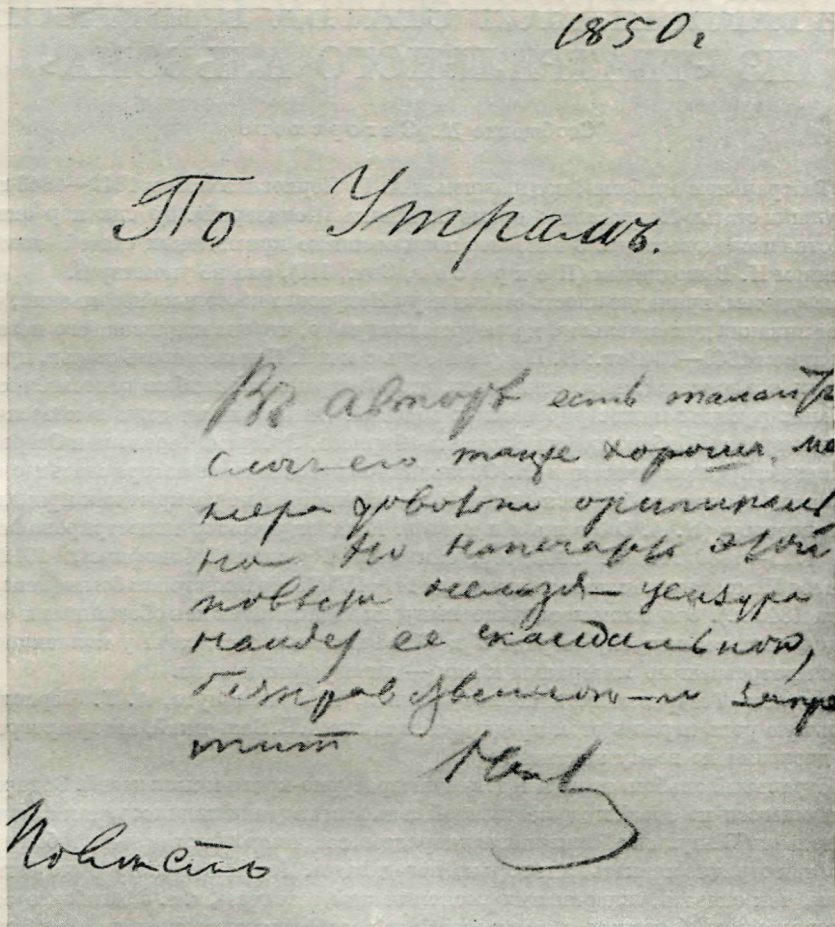 1850 г
По Утрамъ.
Въ авторѣ есть талантъ
слог его также хорош, ма
нера довольно оригиналь
на но напечатать этой
повѣсти нельзя — цензура
найдет ее скандальной,
безнравственною — и запре
тит
Повѣсть